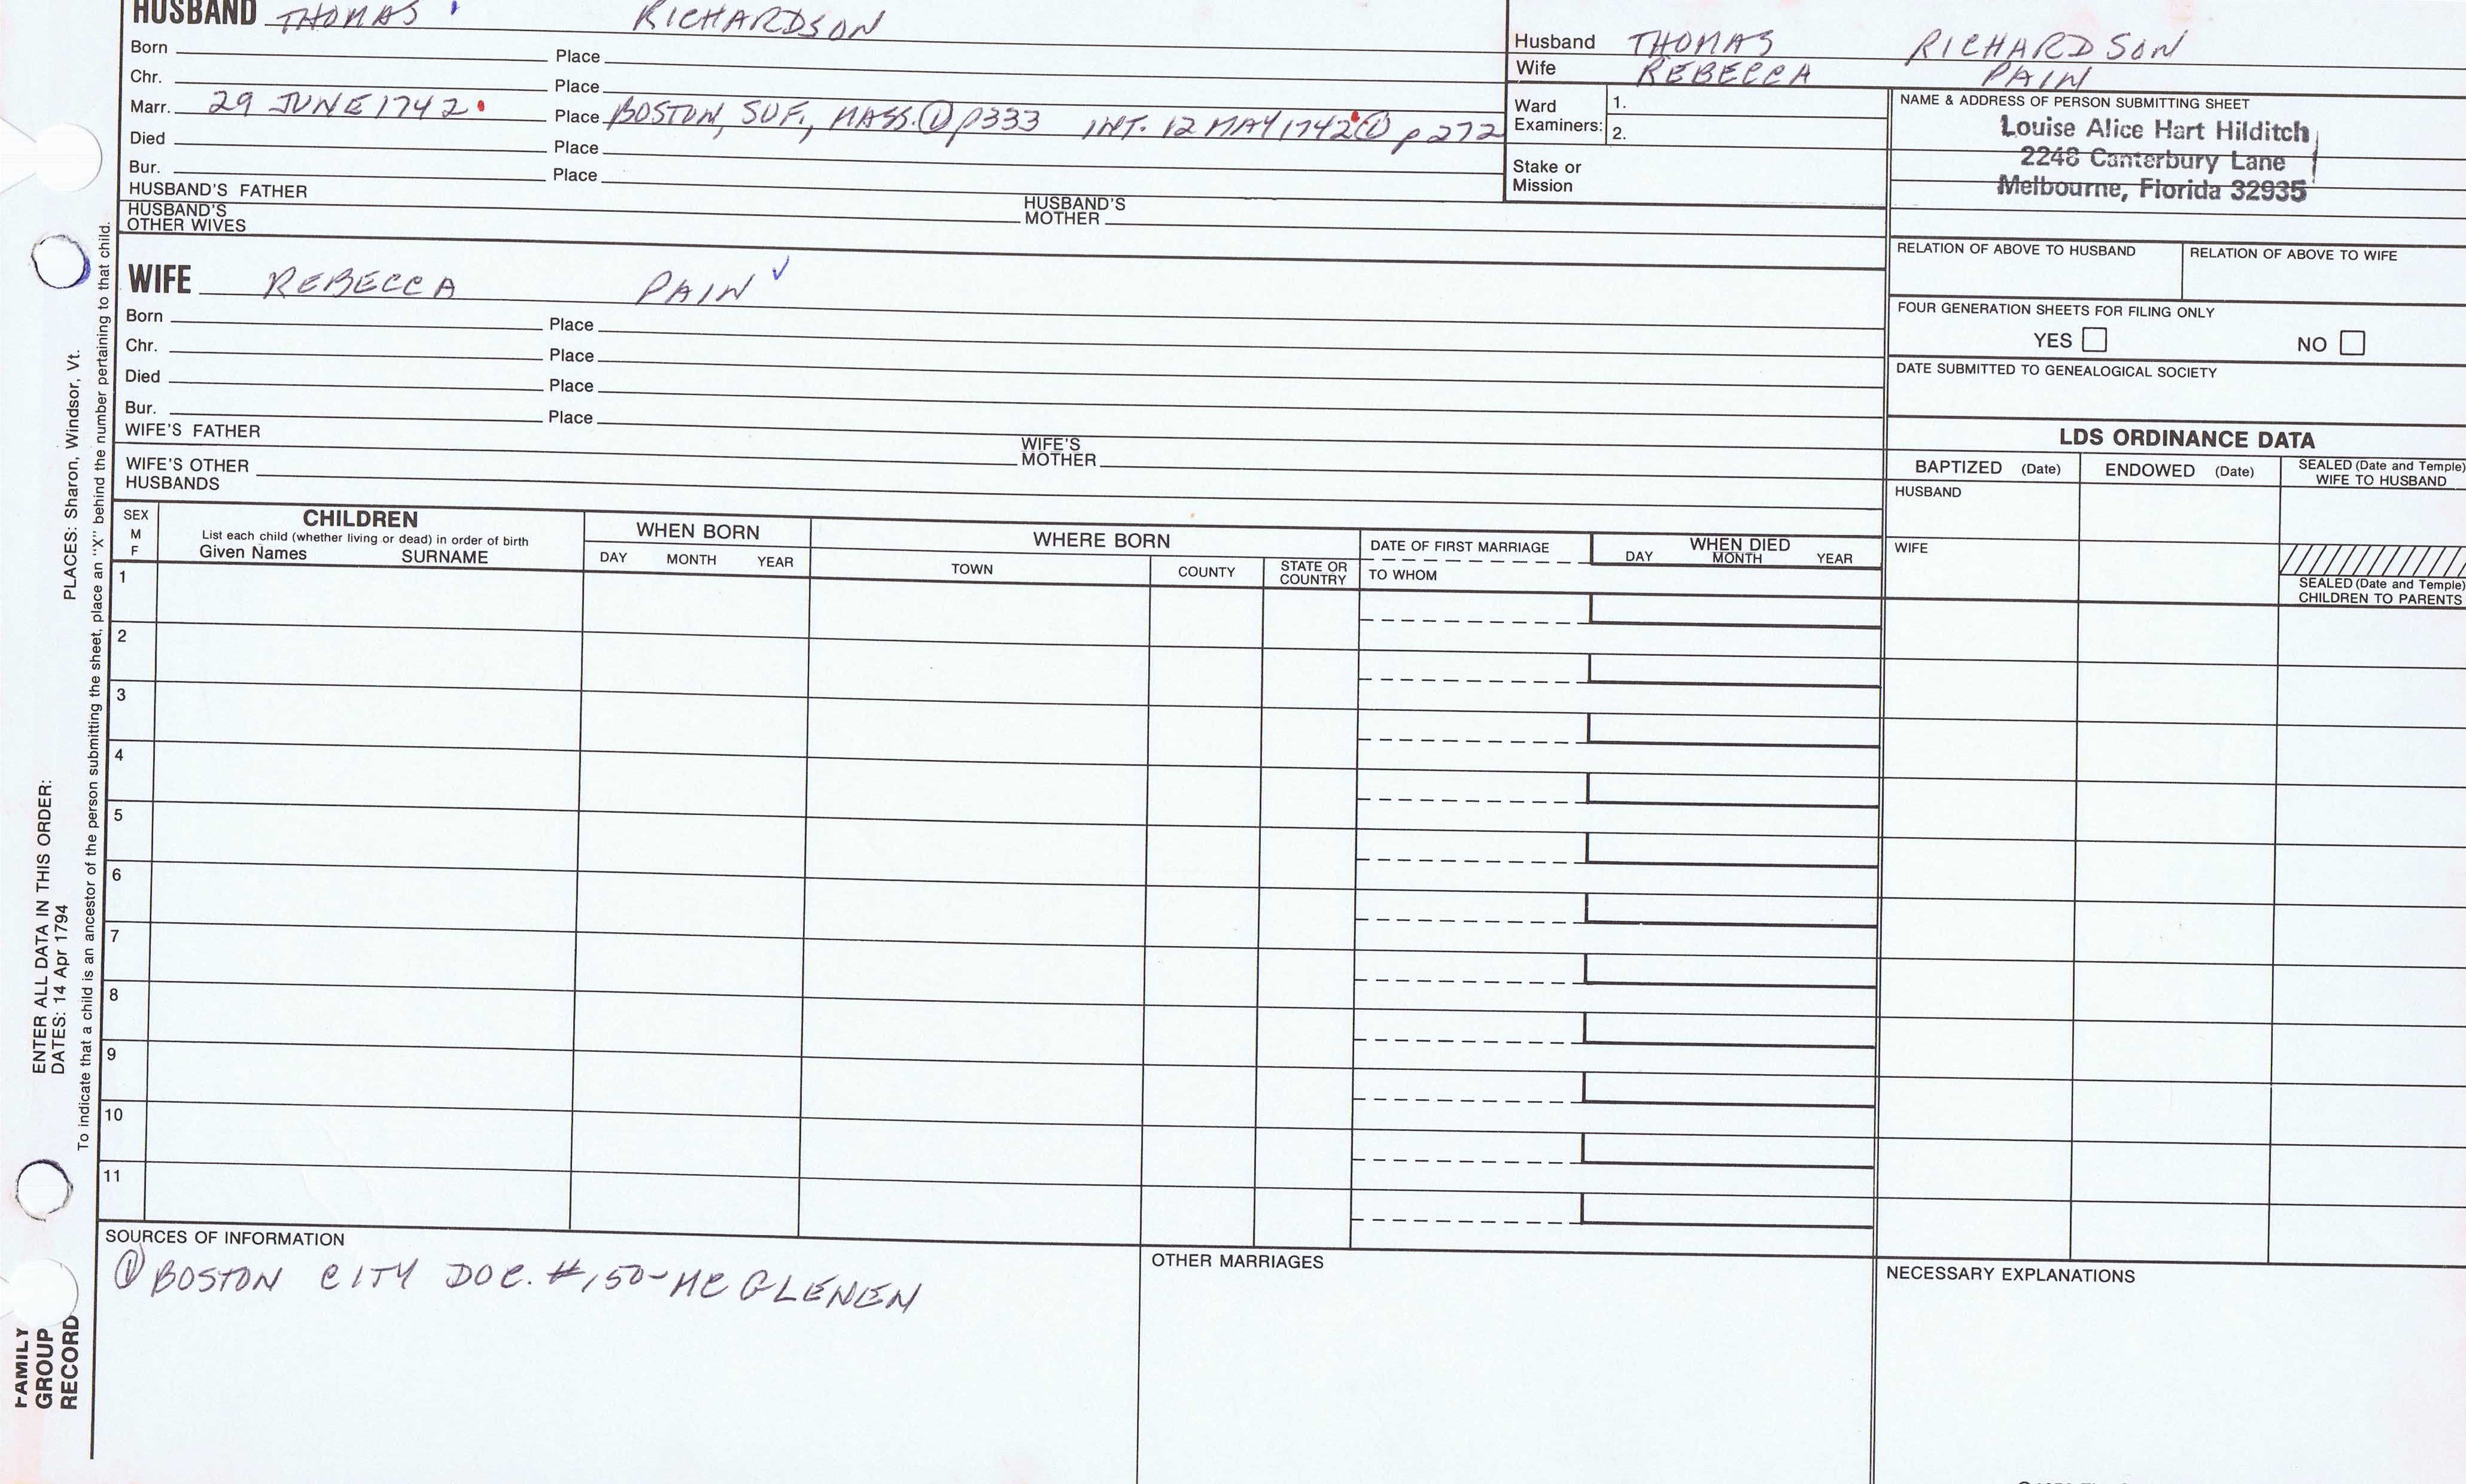 HUSBAND THOMAS RICHARDSON
Born Place
Chr. Place
Marr. 29 JUNE 1742 Place BOSTON, SUF., MASS. ① p333 INT. 12 MAY 1742 ① p 272
Died Place
Bur. Place
HUSBAND'S FATHER HUSBAND'S MOTHER
HUSBAND'S OTHER WIVES
Husband THOMAS RICHARDSON
Wife REBECCA PAIN
Ward Examiners: 1.
2.
Stake or Mission
NAME & ADDRESS OF PERSON SUBMITTING SHEET
Louise Alice Hart Hilditch
2248 Canterbury Lane
Melbourne, Florida 32935
RELATION OF ABOVE TO HUSBAND RELATION OF ABOVE TO WIFE
FOUR GENERATION SHEETS FOR FILING ONLY
YES NO
DATE SUBMITTED TO GENEALOGICAL SOCIETY
WIFE REBECCA PAIN ✓
Born Place
Chr. Place
Died Place
Bur. Place
WIFE'S FATHER WIFE'S MOTHER
WIFE'S OTHER HUSBANDS
LDS ORDINANCE DATA
BAPTIZED (Date) ENDOWED (Date) SEALED (Date and Temple) WIFE TO HUSBAND
HUSBAND
WIFE
SEALED (Date and Temple) CHILDREN TO PARENTS
SEX M F
CHILDREN
List each child (whether living or dead) in order of birth
Given Names SURNAME
WHEN BORN
DAY MONTH YEAR
WHERE BORN
TOWN COUNTY STATE OR COUNTRY
DATE OF FIRST MARRIAGE
TO WHOM
WHEN DIED
DAY MONTH YEAR
1
2
3
4
5
6
7
8
9
10
11
SOURCES OF INFORMATION
① BOSTON CITY DOC. #150-MC GLENEN
OTHER MARRIAGES
NECESSARY EXPLANATIONS
PLACES: Sharon, Windsor, Vt.
ENTER ALL DATA IN THIS ORDER:
DATES: 14 Apr 1794
To indicate that a child is an ancestor of the person submitting the sheet, place an "X" behind the number pertaining to that child.
FAMILY
GROUP
RECORD